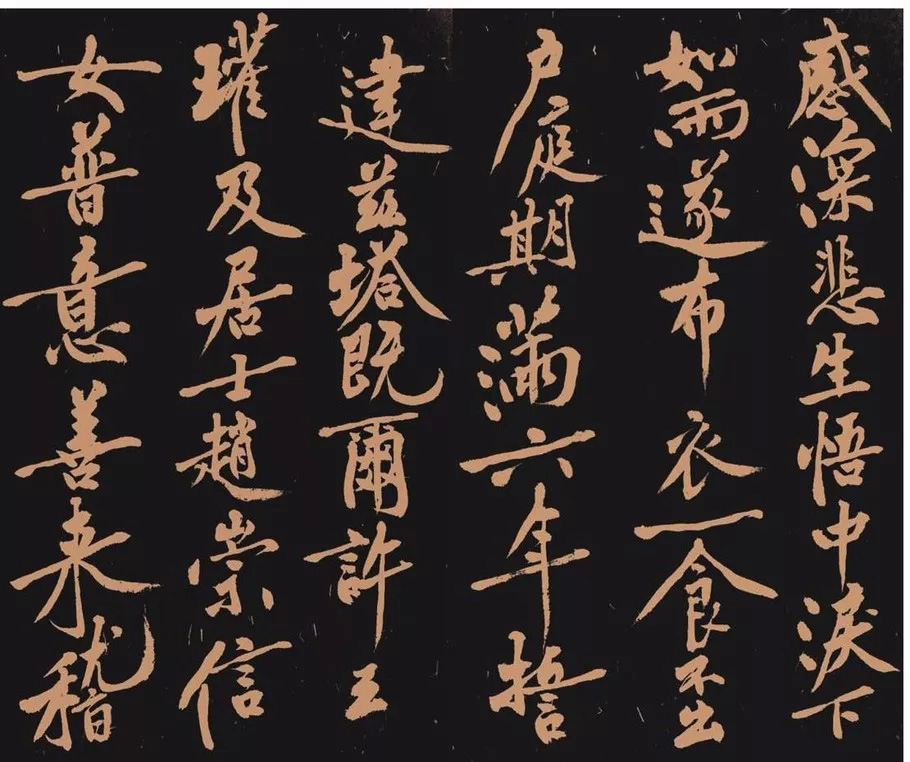 感深悲生悟中淚下
如雨遂布衣一食不出
户庭期滿六年誓
建兹塔既爾許王
瓘及居士趙崇信
女普意善来稽